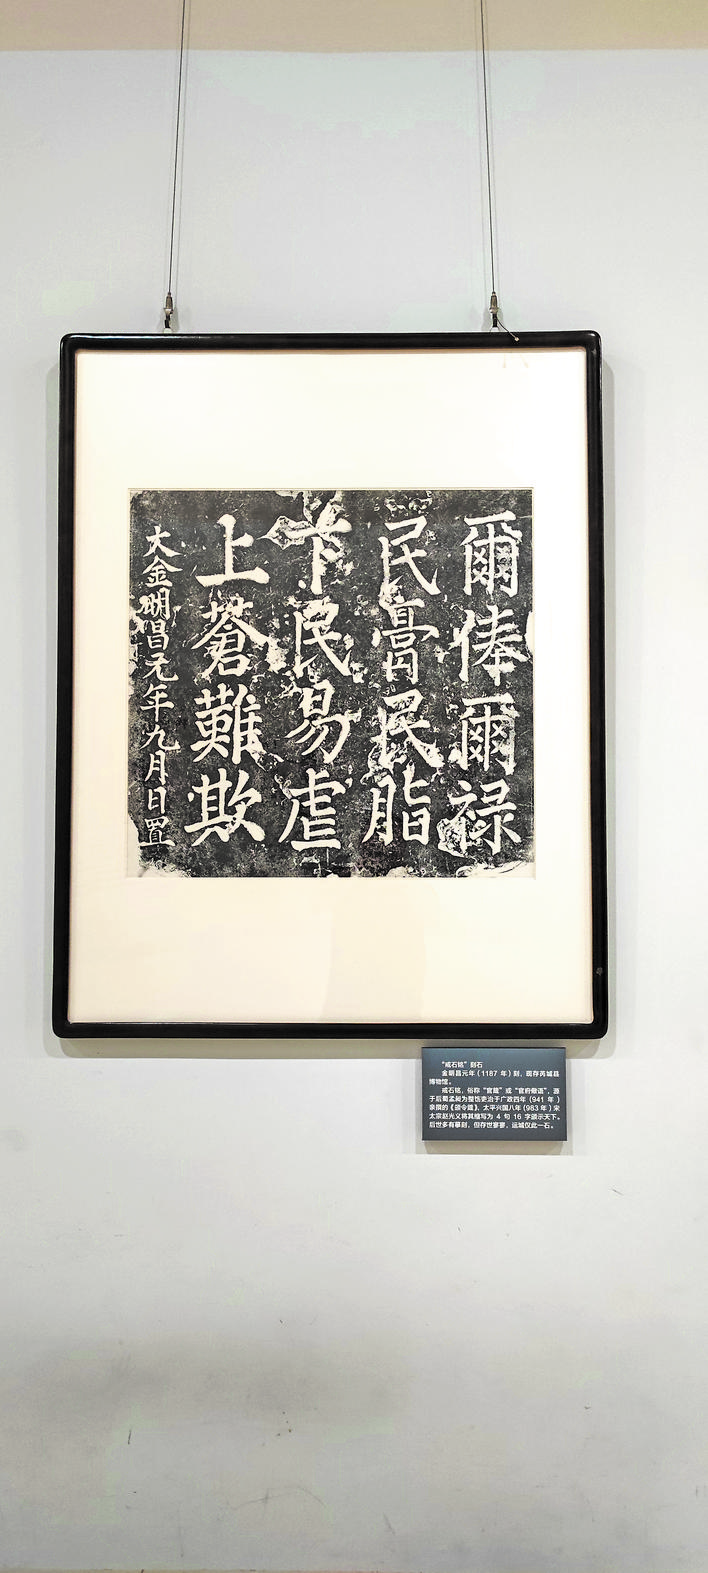 爾俸爾禄
民膏民脂
下民易虐
上蒼難欺
大金明昌元年九月日置
“戒石铭”刻石
金明昌元年（1187 年）刻，现存芮城县
博物馆。
戒石铭，俗称“官箴”或“官府儆语”，源
于后蜀孟昶为整饬吏治于广政四年（941 年）
亲撰的《颁令箴》，太平兴国八年（983 年）宋
太宗赵光义将其缩写为 4 句 16 字颁示天下。
后世多有摹刻，但存世寥寥，运城仅此一石。